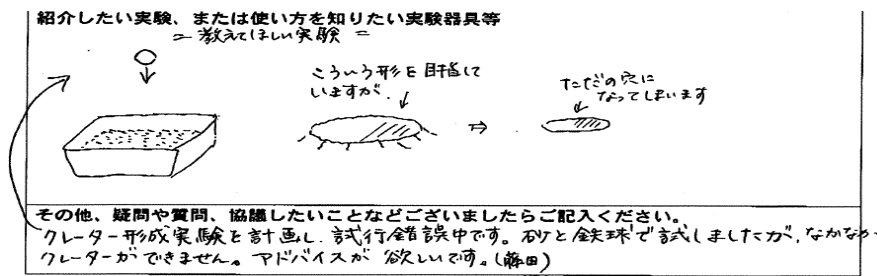 紹介したい実験、または使い方を知りたい実験器具等
= 教えてほしい実験 =
こういう形を目指して
いますが、
⇒
ただの穴に
なってしまいます
その他、疑問や質問、協議したいことなどございましたらご記入ください。
クレーター形成実験を計画し、試行錯誤中です。砂と鉄球で試しましたが、なかなか
クレーターができません。アドバイスが欲しいです。(藤田)